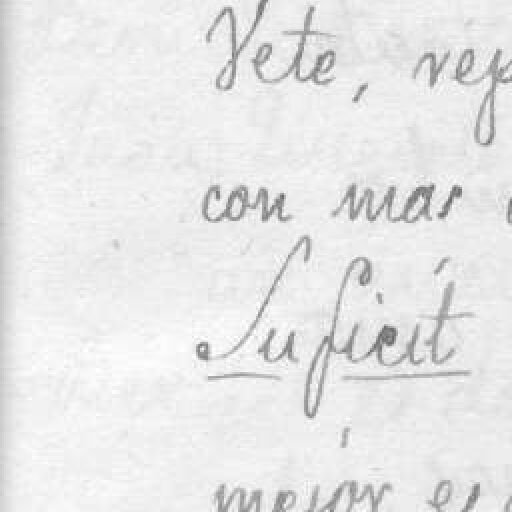 Vete,
con mas
Suficit
mejor es